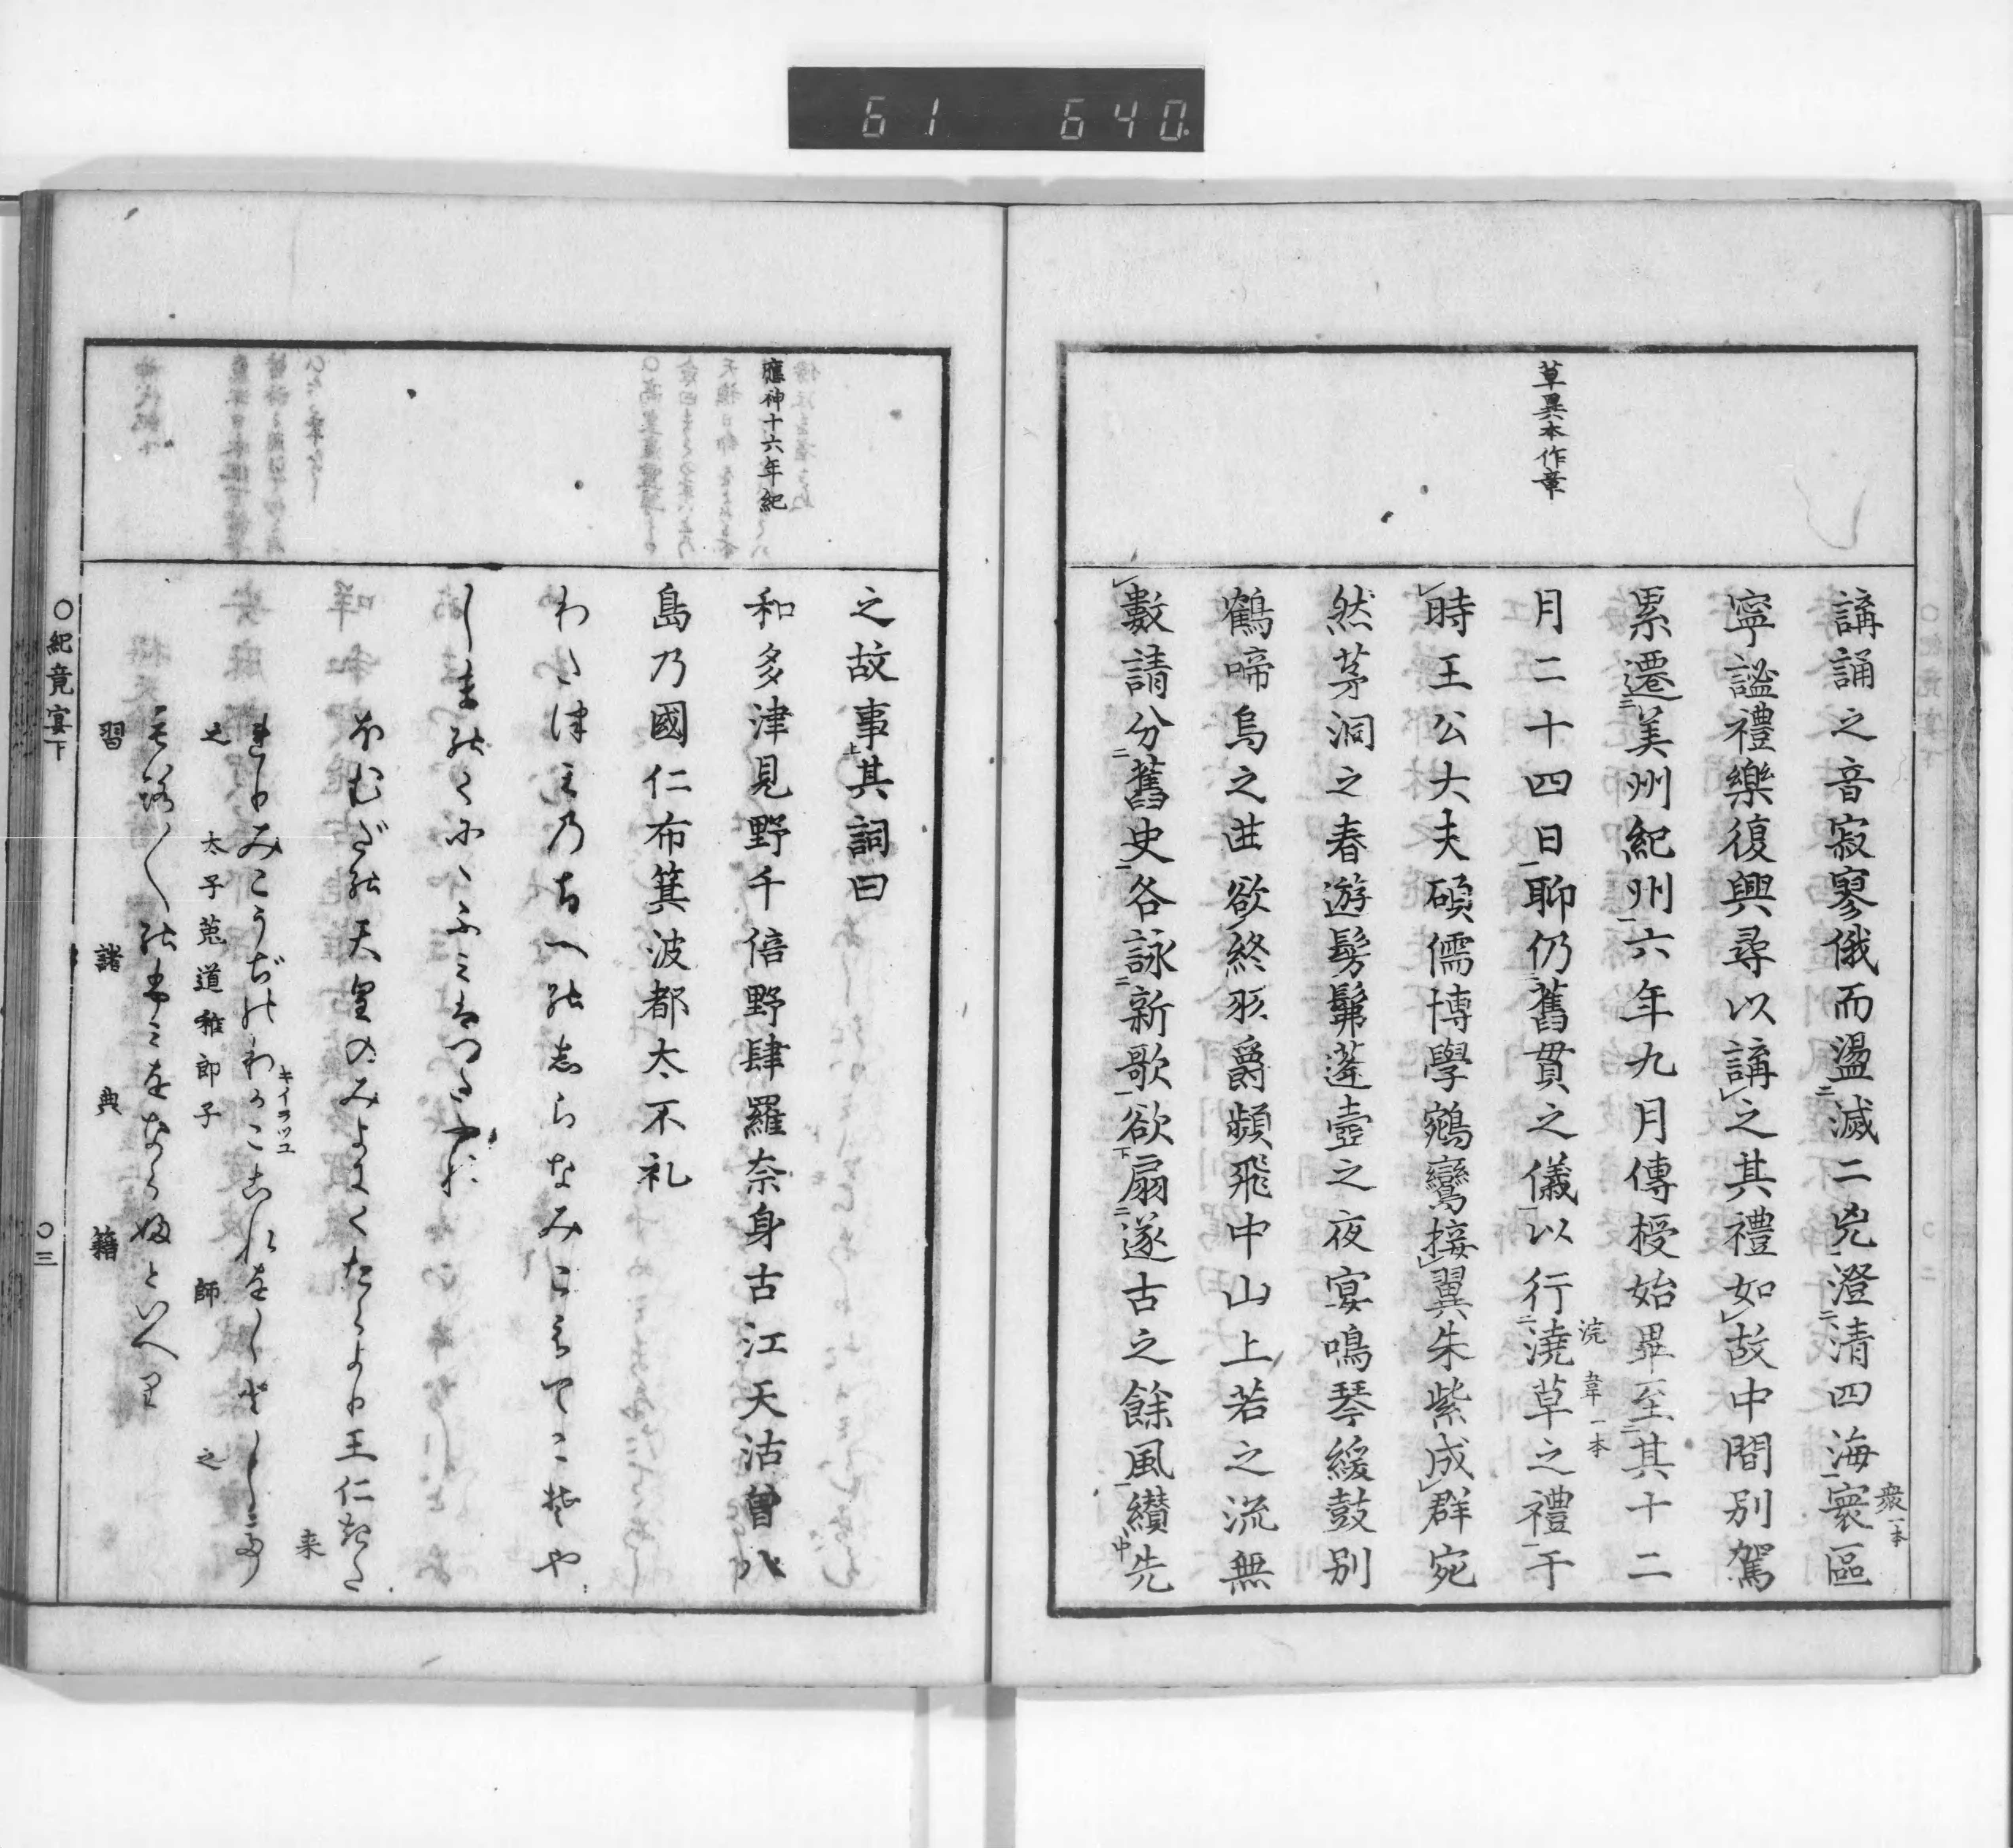 61 640
草異本作章
講誦之音寂寥俄而盪滅二兇澄清四海寰區
衆一本
寧謐禮樂復興尋以講之其禮如故中間別駕
累遷美州紀州六年九月傳授始畢至其十二
浣 韋一本
月二十四日聊仍舊貫之儀以行澆草之禮于
時王公大夫碩儒博學鵷鸞接翼朱紫成群宛
然茅洞之春遊髣髴蓬壼之夜宴鳴琴緩鼓別
鶴啼烏之曲欲終羽爵頻飛中山上若之流無
數請分舊史各詠新歌欲扇遂古之餘風纉先
應神十六年紀
之故事其詞曰
和多津見野千倍野肆羅奈身古江天沽曽八
島乃國仁布箕波都太不礼
わた津三乃ちへ能志らなみこえてこそや
しま能くにゝふみはつたふれ
ほむだ能天皇のみよにくたらより王仁きた
来
れりみこうぢのわかこ
キイラツコ
太子菟道稚郎子
師
之
もろ〱能ふみをならふといへり
習
諸
典
籍
○紀竟宴下
○三